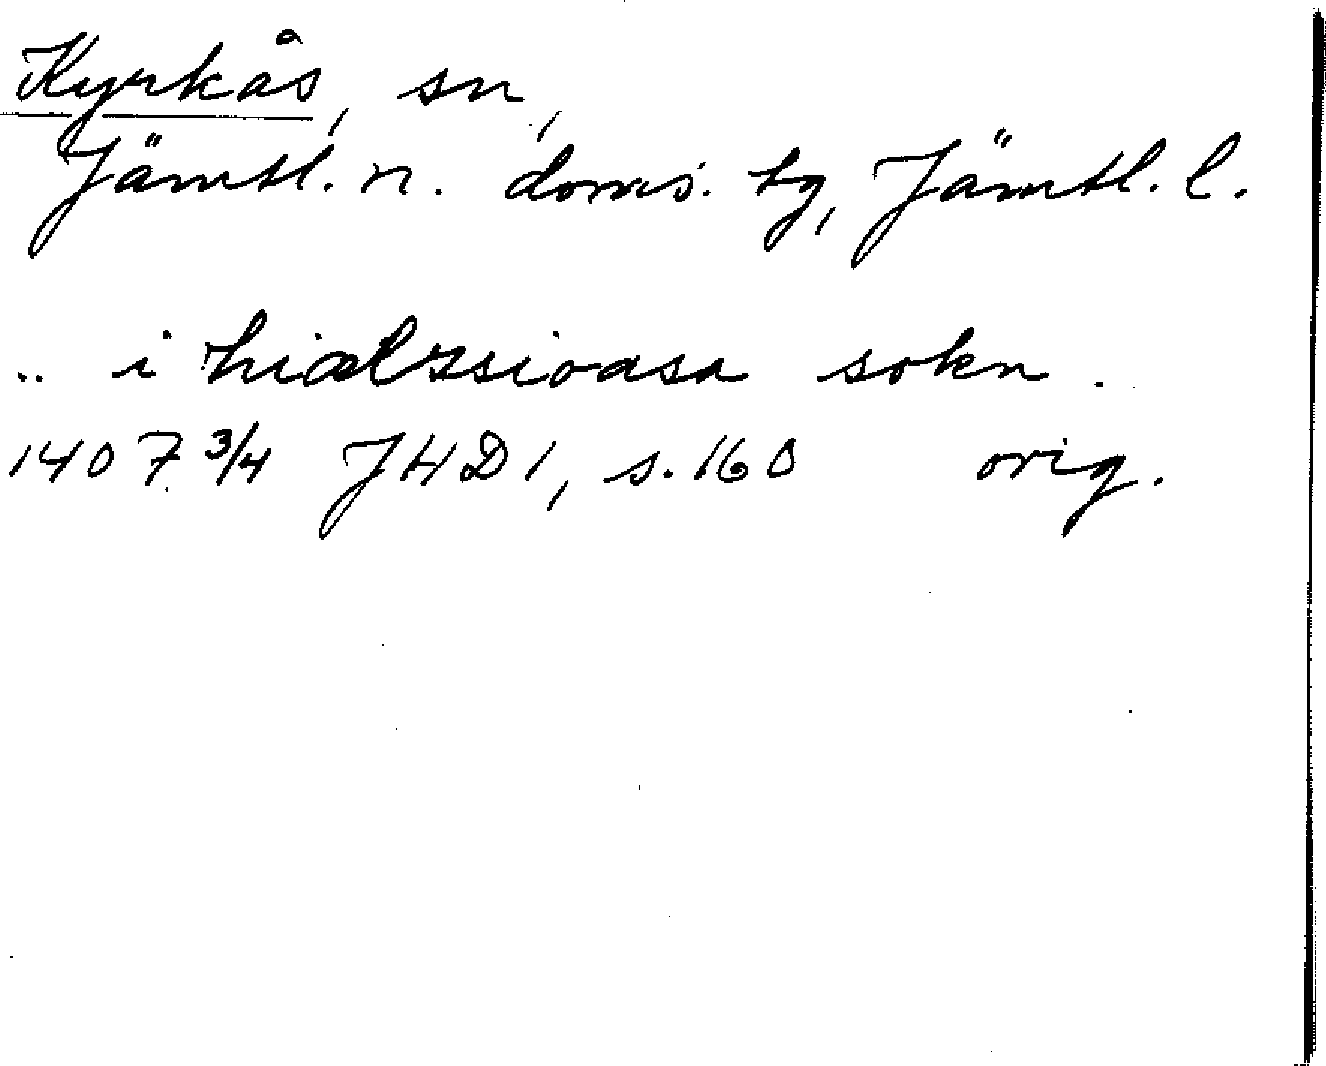 Kyrkås, sn,
Jämtl. n. doms. tg, Jämtl. l.
.. i hiælssioasa sokn.
1407 3/4 JHD 1, s. 160 orig.